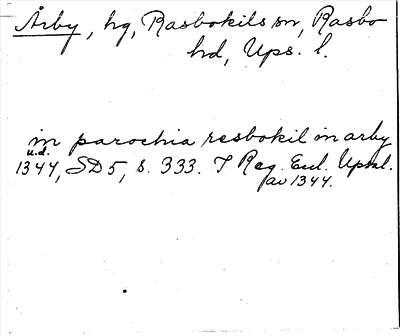 Årby, hg, Rasbokils sn, Rasbo
hd, Ups. l.
in parochia resbokil in arby
u.d.
1344, SD5, s. 333. I Reg. Eccl. Upsal.
av 1344.